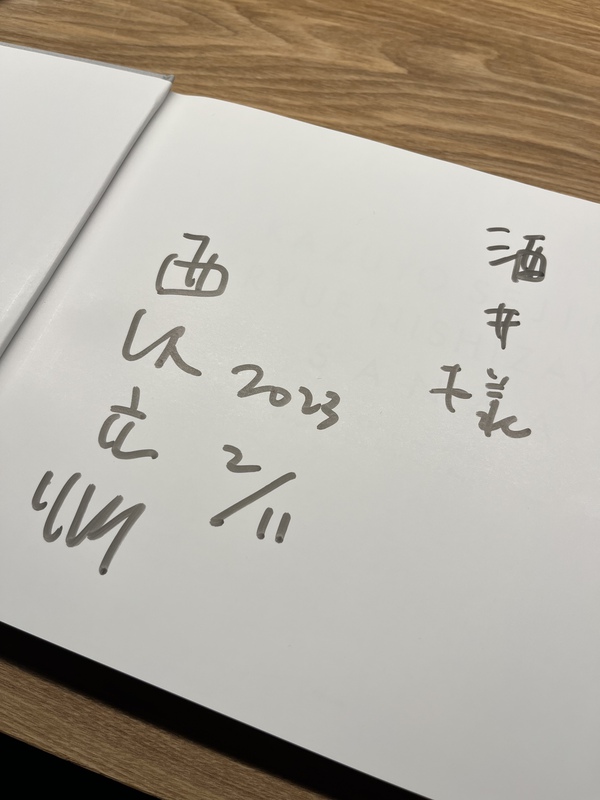 酒井様
2023
2/11
西沢立衛